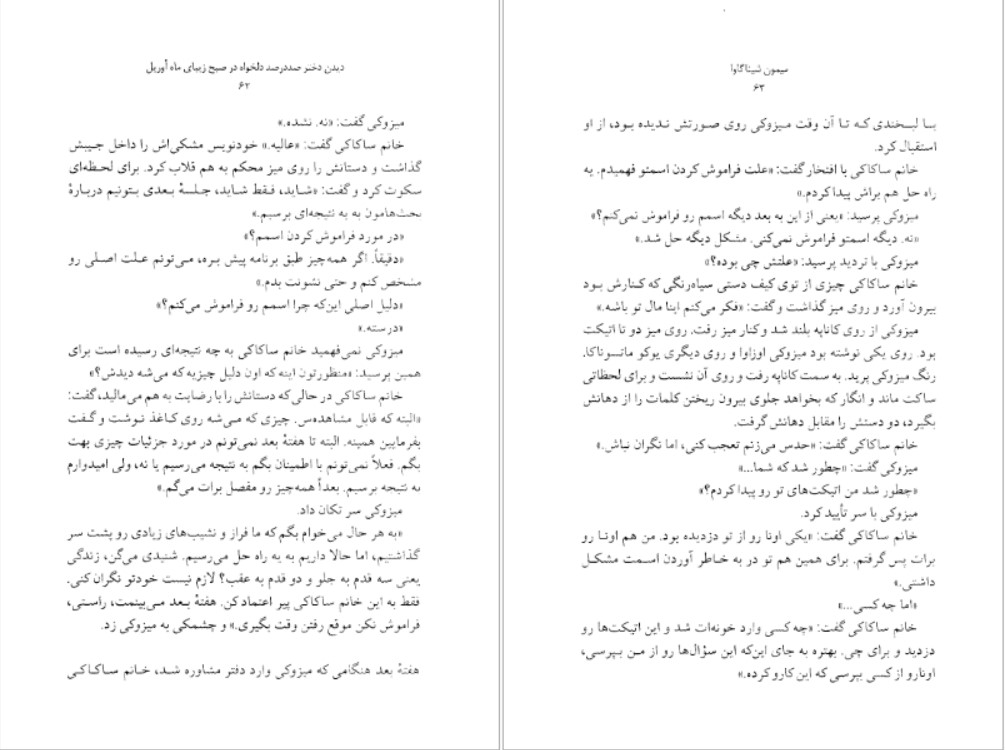 دیدن دختر صددرصد دلخواه در صبح زیبای ماه آوریل
۶۲
میزوکی گفت: «نه. نشده.»
خانم ساکاکی گفت: «عالیه.» خودنویس مشکی‌اش را داخل جیبش
گذاشت و دستانش را روی میز محکم به هم قلاب کرد. برای لحظه‌ای
سکوت کرد و گفت: «شاید، فقط شاید، جلسهٔ بعدی بتونیم دربارهٔ
بحث‌هامون به یه نتیجه‌ای برسیم.»
«در مورد فراموش کردن اسمم؟»
«دقیقاً. اگر همه‌چیز طبق برنامه پیش بره، می‌تونم علت اصلی رو
مشخص کنم و حتی نشونت بدم.»
«دلیل اصلی این‌که چرا اسمم رو فراموش می‌کنم؟»
«درسته.»
میزوکی نمی‌فهمید خانم ساکاکی به چه نتیجه‌ای رسیده است برای
همین پرسید: «منظورتون اینه که اون دلیل چیزیه که می‌شه دیدش؟»
خانم ساکاکی در حالی‌که دستانش را با رضایت به هم می‌مالید، گفت:
«البته که قابل مشاهده‌س. چیزی که می‌شه روی کاغذ نوشت و گفت
بفرمایین همینه. البته تا هفتهٔ بعد نمی‌تونم در مورد جزئیات چیزی بهت
بگم. فعلاً نمی‌تونم با اطمینان بگم به نتیجه می‌رسیم یا نه، ولی امیدوارم
به نتیجه برسیم. بعداً همه‌چیز رو مفصل برات می‌گم.»
میزوکی سر تکان داد.
«به هر حال می‌خوام بگم که ما فراز و نشیب‌های زیادی رو پشت سر
گذاشتیم، اما حالا داریم به یه راه حل می‌رسیم. شنیدی می‌گن، زندگی
یعنی سه قدم به جلو و دو قدم به عقب؟ لازم نیست خودتو نگران کنی.
فقط به این خانم ساکاکی پیر اعتماد کن. هفتهٔ بعد می‌بینمت، راستی،
فراموش نکن موقع رفتن وقت بگیری.» و چشمکی به میزوکی زد.
هفتهٔ بعد هنگامی که میزوکی وارد دفتر مشاوره شد، خانم ساکاکی
میمون شیناگاوا
۶۳
با لبخندی که تا آن وقت میزوکی روی صورتش ندیده بود، از او
استقبال کرد.
خانم ساکاکی با افتخار گفت: «علت فراموش کردن اسمتو فهمیدم. یه
راه حل هم براش پیدا کردم.»
میزوکی پرسید: «یعنی از این به بعد دیگه اسمم رو فراموش نمی‌کنم؟»
«نه. دیگه اسمتو فراموش نمی‌کنی. مشکل دیگه حل شد.»
میزوکی با تردید پرسید: «علتش چی بوده؟»
خانم ساکاکی چیزی از توی کیف دستی سیاه‌رنگی که کنارش بود
بیرون آورد و روی میز گذاشت و گفت: «فکر می‌کنم اینا مال تو باشه.»
میزوکی از روی کاناپه بلند شد و کنار میز رفت. روی میز دو تا اتیکت
بود. روی یکی نوشته بود میزوکی اوزاوا و روی دیگری یوکو ماتسوناکا.
رنگ میزوکی پرید. به سمت کاناپه رفت و روی آن نشست و برای لحظاتی
ساکت ماند و انگار که بخواهد جلوی بیرون ریختن کلمات را از دهانش
بگیرد، دو دستش را مقابل دهانش گرفت.
خانم ساکاکی گفت: «حدس می‌زنم تعجب کنی، اما نگران نباش.»
میزوکی گفت: «چطور شد که شما...»
«چطور شد من اتیکت‌های تو رو پیدا کردم؟»
میزوکی با سر تأیید کرد.
خانم ساکاکی گفت: «یکی اونا رو از تو دزدیده بود. من هم اونا رو
برات پس گرفتم. برای همین هم تو در به خاطر آوردن اسمت مشکل
داشتی.»
«اما چه کسی...»
خانم ساکاکی گفت: «چه کسی وارد خونه‌ات شد و این اتیکت‌ها رو
دزدید و برای چی. بهتره به جای این‌که این سؤال‌ها رو از من بپرسی،
اونارو از کسی بپرسی که این کارو کرده.»